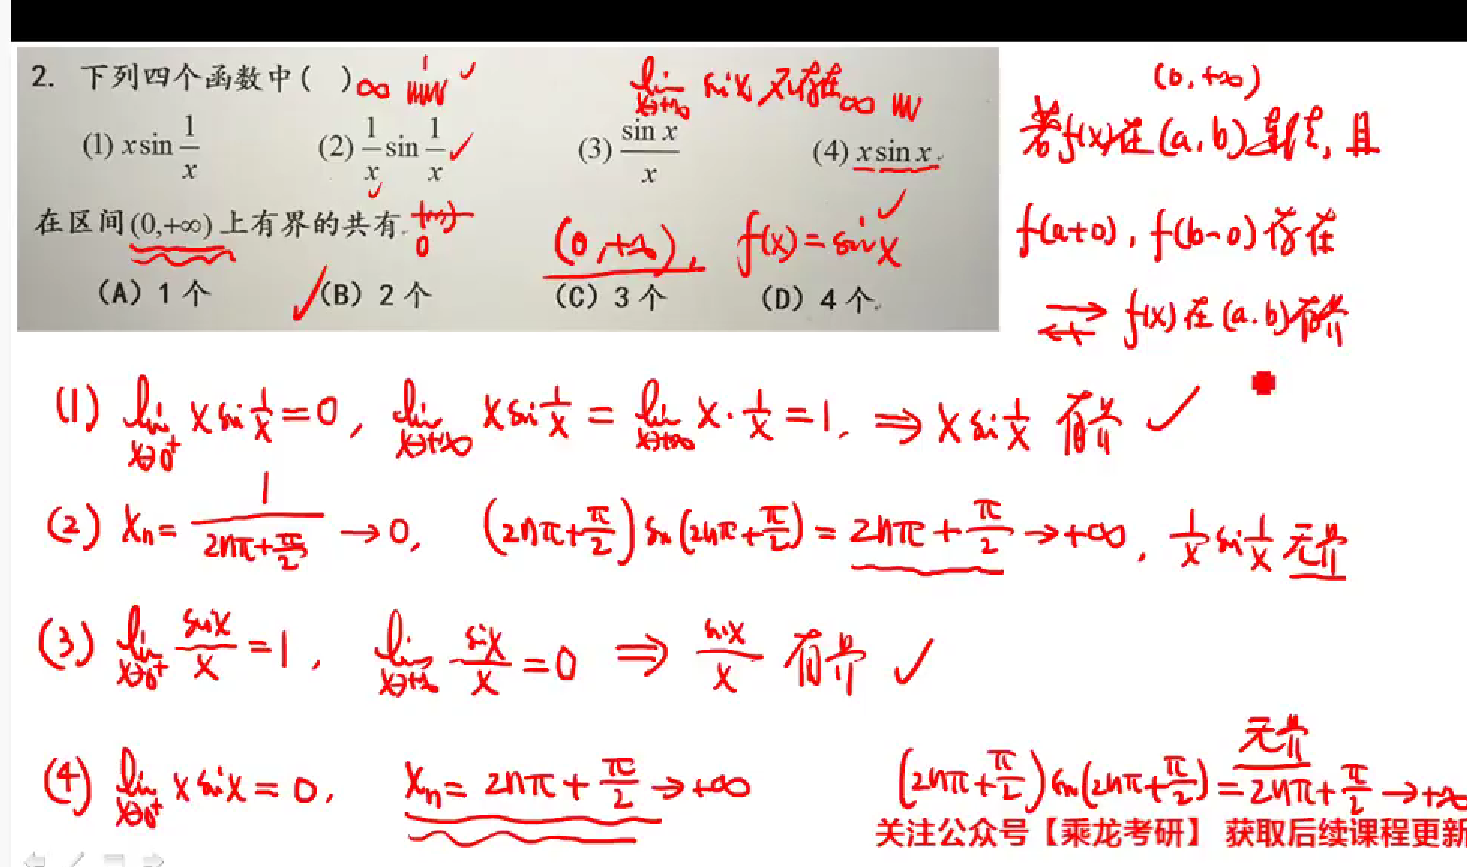 2. 下列四个函数中( ) ∞
(1) x sin 1/x (2) 1/x sin 1/x (3) sin x/x (4) x sin x.
在区间(0,+∞)上有界的共有
(A) 1 个 (B) 2 个 (C) 3 个 (D) 4 个.
lim x→+∞ sin x 不存在 ∞
(0,+∞), f(x)=sin x
(0,+∞)
若f(x)在(a,b)连续,且
f(a+0), f(b-0)存在
f(x)在(a.b)有界
(1) lim x→0⁺ x sin 1/x = 0, lim x→+∞ x sin 1/x = lim x→+∞ x · 1/x = 1. ⇒ x sin 1/x 有界 ✓
(2) xₙ = 1/(2nπ+π/2) → 0, (2nπ+π/2) sin(2nπ+π/2) = 2nπ+π/2 → +∞, 1/x sin 1/x 无界
(3) lim x→0⁺ sin x/x = 1, lim x→+∞ sin x/x = 0 ⇒ sin x/x 有界 ✓
(4) lim x→0⁺ x sin x = 0, xₙ = 2nπ+π/2 → +∞ (2nπ+π/2) sin(2nπ+π/2) = 2nπ+π/2 → +∞
无界
关注公众号【乘龙考研】 获取后续课程更新